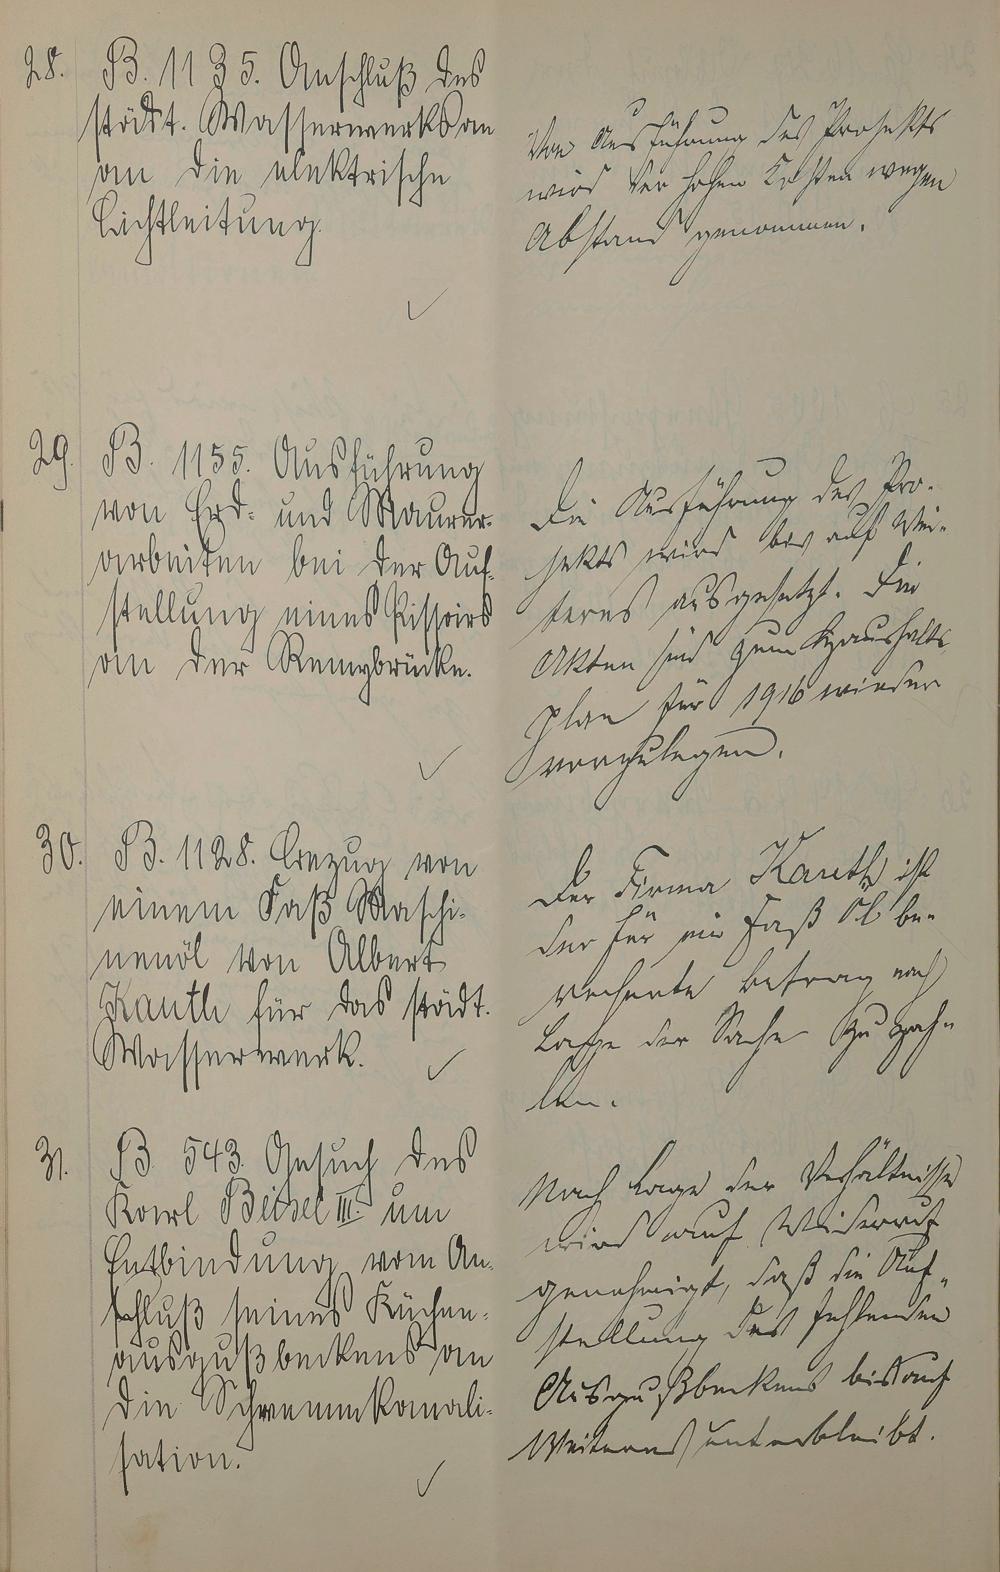 28. B. 1135. Anschluß des
städt. Wasserwerks an
an die elektrische
Lichtleitung.
Von Ausführung des Projekts
wird der hohen Kosten wegen
Abstand genommen.
29. B. 1155. Ausführung
von Erd- und Maurer-
arbeiten bei der Auf-
stellung eines Pissoirs
an der Remybrücke.
Die Ausführung des Pro-
jekts wird bis auf Wei-
teres ausgesetzt. Die
Akten sind zum Haushalts
plan für 1916 wieder
vorzulegen.
30. B. 1128. Bezug von
einem Faß Maschi-
nenöl von Albert
Kauth für das städt.
Wasserwerk.
Der Firma Kauth ist
der für ein Faß Öl be-
rechnete Betrag nach
Lage der Sache zu zah-
len.
31. B 543. Gesuch des
Karl Beisel III. um
Entbindung vom An-
schluß seines Küchen-
ausgußbeckens an
die Schwemmkanali-
sation.
Nach Lage der Verhältnisse
wird auf Widerruf
genehmigt, daß die Auf-
stellung des fehlenden
Ausgußbeckens bis auf
Weiteres unterbleibt.